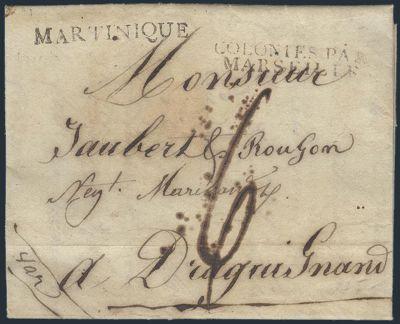 MARTINIQUE
COLONIES PAR
MARSEILLE
Monsieur
Jaubert & Rouson
Negt.
6
a Draguignand